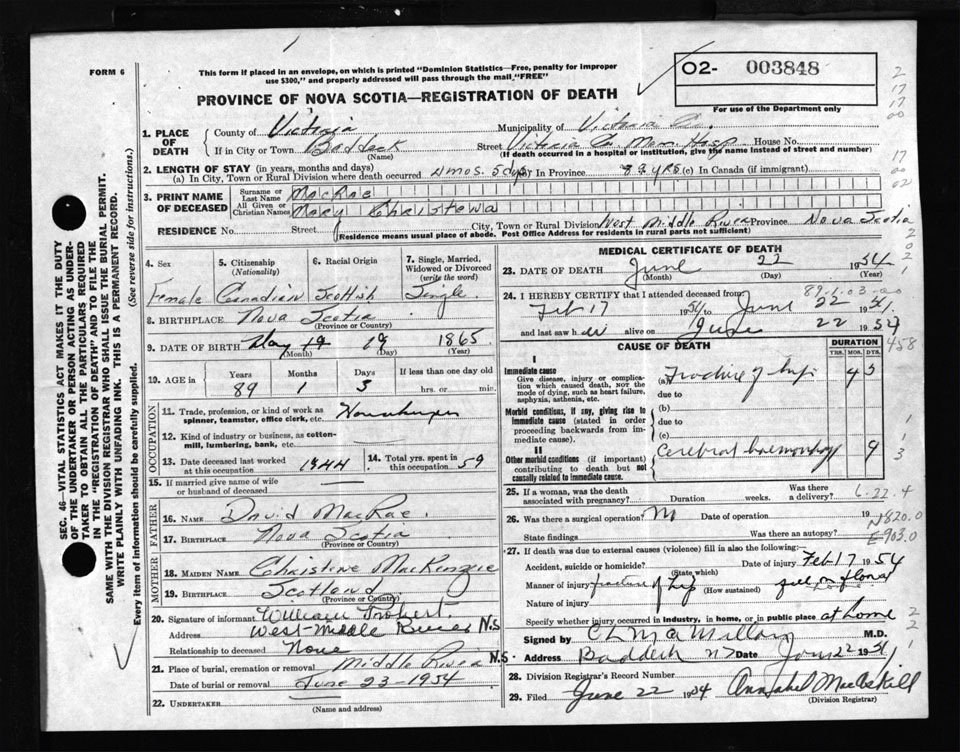 FORM 6
This form if placed in an envelope, on which is printed "Dominion Statistics—Free, penalty for improper
use $300," and properly addressed will pass through the mail "FREE"
02- 003848
For use of the Department only
PROVINCE OF NOVA SCOTIA—REGISTRATION OF DEATH
1. PLACE OF DEATH
County of Victoria Municipality of Victoria Co.
If in City or Town Baddeck (Name) Street Victoria Co Mem Hosp House No.
(If death occurred in a hospital or institution, give the name instead of street and number)
2. LENGTH OF STAY (in years, months and days)
(a) In City, Town or Rural Division where death occurred 4mos. 5dys (b) In Province yrs (c) In Canada (if immigrant)
3. PRINT NAME OF DECEASED
Surname or Last Name MacRae
All Given or Christian Names Mary Christena
RESIDENCE No. Street City, Town or Rural Division West Middle River Province Nova Scotia
(Residence means usual place of abode. Post Office Address for residents in rural parts not sufficient)
4. Sex Female
5. Citizenship (Nationality) Canadian
6. Racial Origin Scottish
7. Single, Married, Widowed or Divorced (write the word) Single.
8. BIRTHPLACE Nova Scotia
(Province or Country)
9. DATE OF BIRTH May (Month) 19 (Day) 1865 (Year)
10. AGE in Years 89 Months 1 Days 3 If less than one day old hrs. or min.
OCCUPATION
11. Trade, profession, or kind of work as spinner, teamster, office clerk, etc. Housekeeper
12. Kind of industry or business, as cotton-mill, lumbering, bank, etc.
13. Date deceased last worked at this occupation 1944
14. Total yrs. spent in this occupation 59
15. If married give name of wife or husband of deceased
FATHER
16. NAME David MacRae.
17. BIRTHPLACE Nova Scotia
(Province or Country)
MOTHER
18. MAIDEN NAME Christine MacKenzie
19. BIRTHPLACE Scotland
(Province or Country)
20. Signature of informant William
Address West Middle River N.S
Relationship to deceased None
21. Place of burial, cremation or removal Middle River N.S.
Date of burial or removal June 23-1954
22. UNDERTAKER
(Name and address)
MEDICAL CERTIFICATE OF DEATH
23. DATE OF DEATH June (Month) 22 (Day) 1954 (Year)
24. I HEREBY CERTIFY that I attended deceased from
Feb 17 1954 to June 22 1954
and last saw her alive on June 22 1954
CAUSE OF DEATH
DURATION
YRS. MOS. DYS.
I
Immediate cause
Give disease, injury or complication which caused death, not the mode of dying, such as heart failure, asphyxia, asthenia, etc.
(a) Fracture of hip 4 5
due to
Morbid conditions, if any, giving rise to immediate cause (stated in order proceeding backwards from immediate cause).
(b)
due to
(c)
II
Other morbid conditions (if important) contributing to death but not causally related to immediate cause.
Cerebral haemorrhage 9
25. If a woman, was the death associated with pregnancy? Duration weeks. Was there a delivery?
6-22.4
26. Was there a surgical operation? No Date of operation 19
State findings Was there an autopsy?
N820.0
E-903.0
27. If death was due to external causes (violence) fill in also the following:—
Accident, suicide or homicide? (State which) Date of injury Feb 17 1954
Manner of injury fracture of hip (How sustained) fell on floor
Nature of injury
Specify whether injury occurred in industry, in home, or in public place at home
Signed by C L MacMillan M.D.
Address Baddeck NS Date June 22 1954
28. Division Registrar's Record Number
29. Filed June 22 1954 Annabel MacAskill
(Division Registrar)
SEC. 46—VITAL STATISTICS ACT MAKES IT THE DUTY
OF THE UNDERTAKER OR PERSON ACTING AS UNDER-
TAKER TO OBTAIN ALL THE PARTICULARS REQUIRED
IN THE "REGISTRATION OF DEATH" AND TO FILE THE
SAME WITH THE DIVISION REGISTRAR WHO SHALL ISSUE THE BURIAL PERMIT.
WRITE PLAINLY WITH UNFADING INK. THIS IS A PERMANENT RECORD.
Every item of information should be carefully supplied. (See reverse side for instructions.)